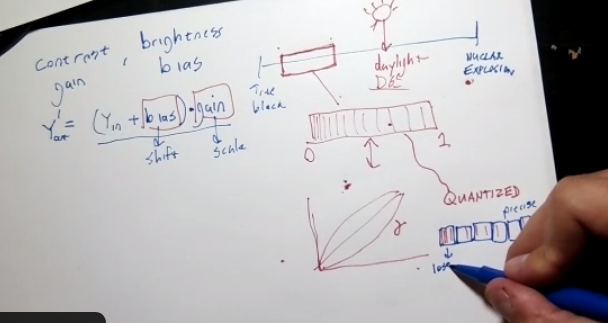 contrast, brightness
gain bias
Y'out = (Yin + bias) • gain
shift scale
True
black
daylight
NUCLEAR
EXPLOSION
0 1
γ
QUANTIZED
precise